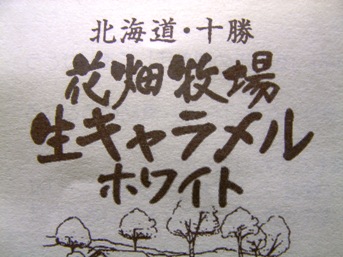 北海道・十勝
花畑牧場
生キャラメル
ホワイト